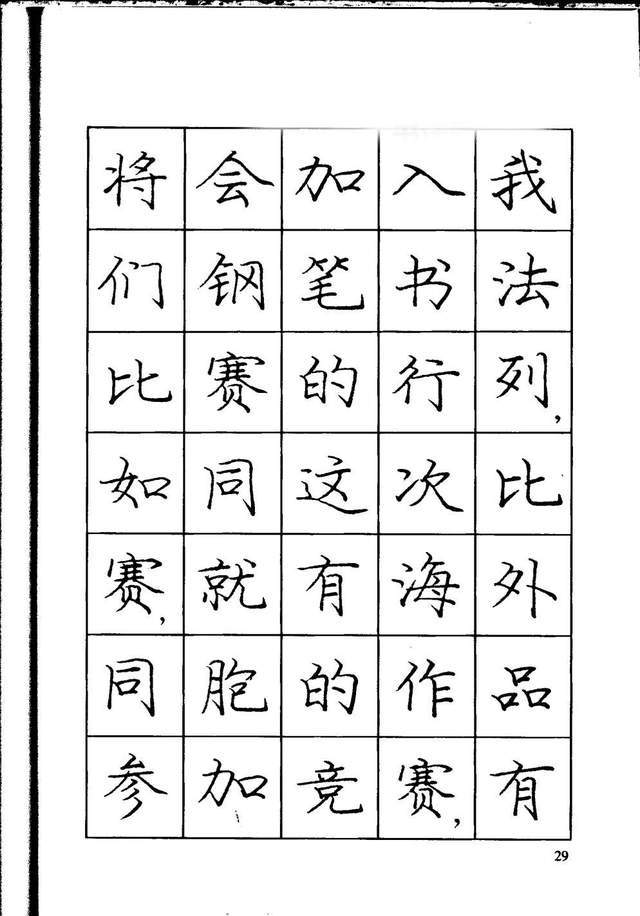 将会加入我
们钢笔书法
比赛的行列,
如同这次比
赛,就有海外
同胞的作品
参加竞赛,有
29